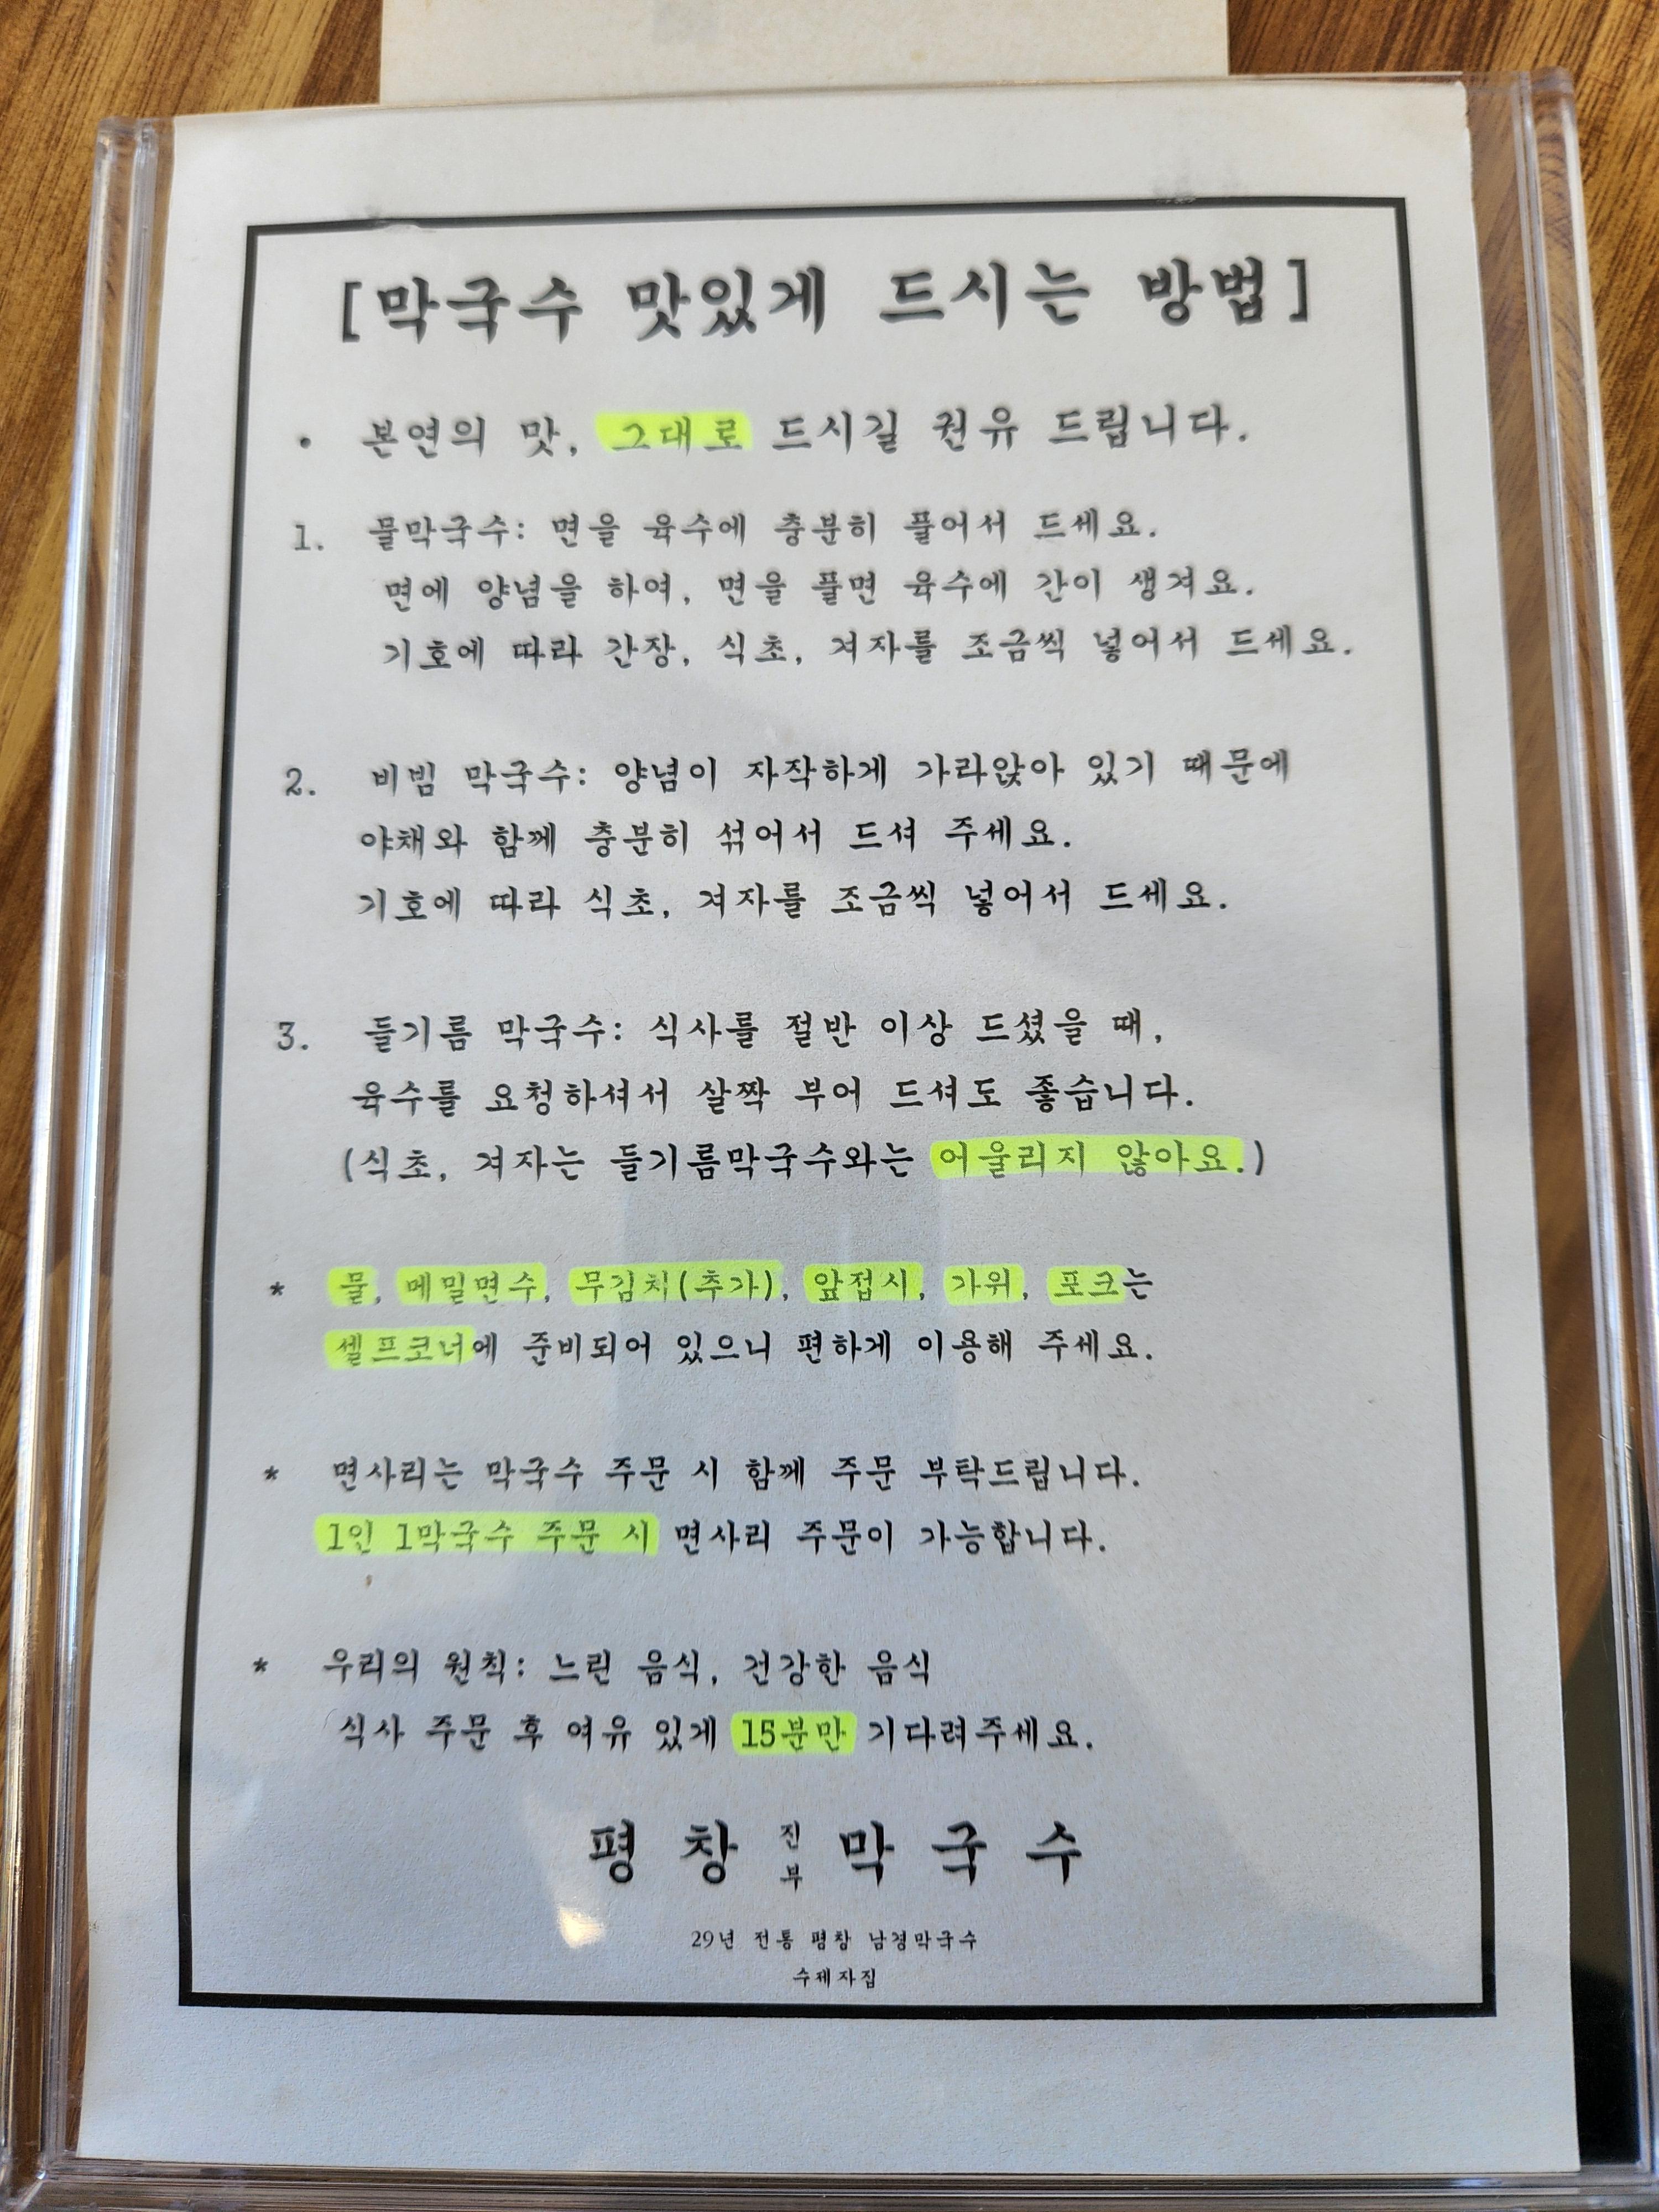 [막국수 맛있게 드시는 방법]
• 본연의 맛, 그대로 드시길 권유 드립니다.
1. 물막국수: 면을 육수에 충분히 풀어서 드세요.
면에 양념을 하여, 면을 풀면 육수에 간이 생겨요.
기호에 따라 간장, 식초, 겨자를 조금씩 넣어서 드세요.
2. 비빔 막국수: 양념이 자작하게 가라앉아 있기 때문에
야채와 함께 충분히 섞어서 드셔 주세요.
기호에 따라 식초, 겨자를 조금씩 넣어서 드세요.
3. 들기름 막국수: 식사를 절반 이상 드셨을 때,
육수를 요청하셔서 살짝 부어 드셔도 좋습니다.
(식초, 겨자는 들기름막국수와는 어울리지 않아요.)
* 물, 메밀면수, 무김치(추가), 앞접시, 가위, 포크는
셀프코너에 준비되어 있으니 편하게 이용해 주세요.
* 면사리는 막국수 주문 시 함께 주문 부탁드립니다.
1인 1막국수 주문 시 면사리 주문이 가능합니다.
* 우리의 원칙: 느린 음식, 건강한 음식
식사 주문 후 여유 있게 15분만 기다려주세요.
평창 진부 막국수
29년 전통 평창 남경막국수
수제자집